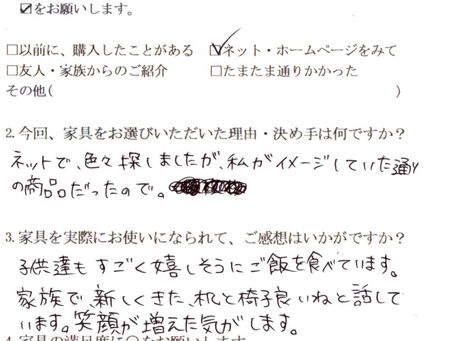 ☑をお願いします。
□以前に、購入したことがある ☑ネット・ホームページをみて
□友人・家族からのご紹介 □たまたま通りかかった
その他( )
2.今回、家具をお選びいただいた理由・決め手は何ですか？
ネットで、色々探しましたが、私がイメージしていた通り
の商品だったので。
3.家具を実際にお使いになられて、ご感想はいかがですか？
子供達もすごく嬉しそうにご飯を食べています。
家族で、新しくきた、机と椅子良いねと話して
います。笑顔が増えた気がします。
4.家具の満足度に○をお願いします。